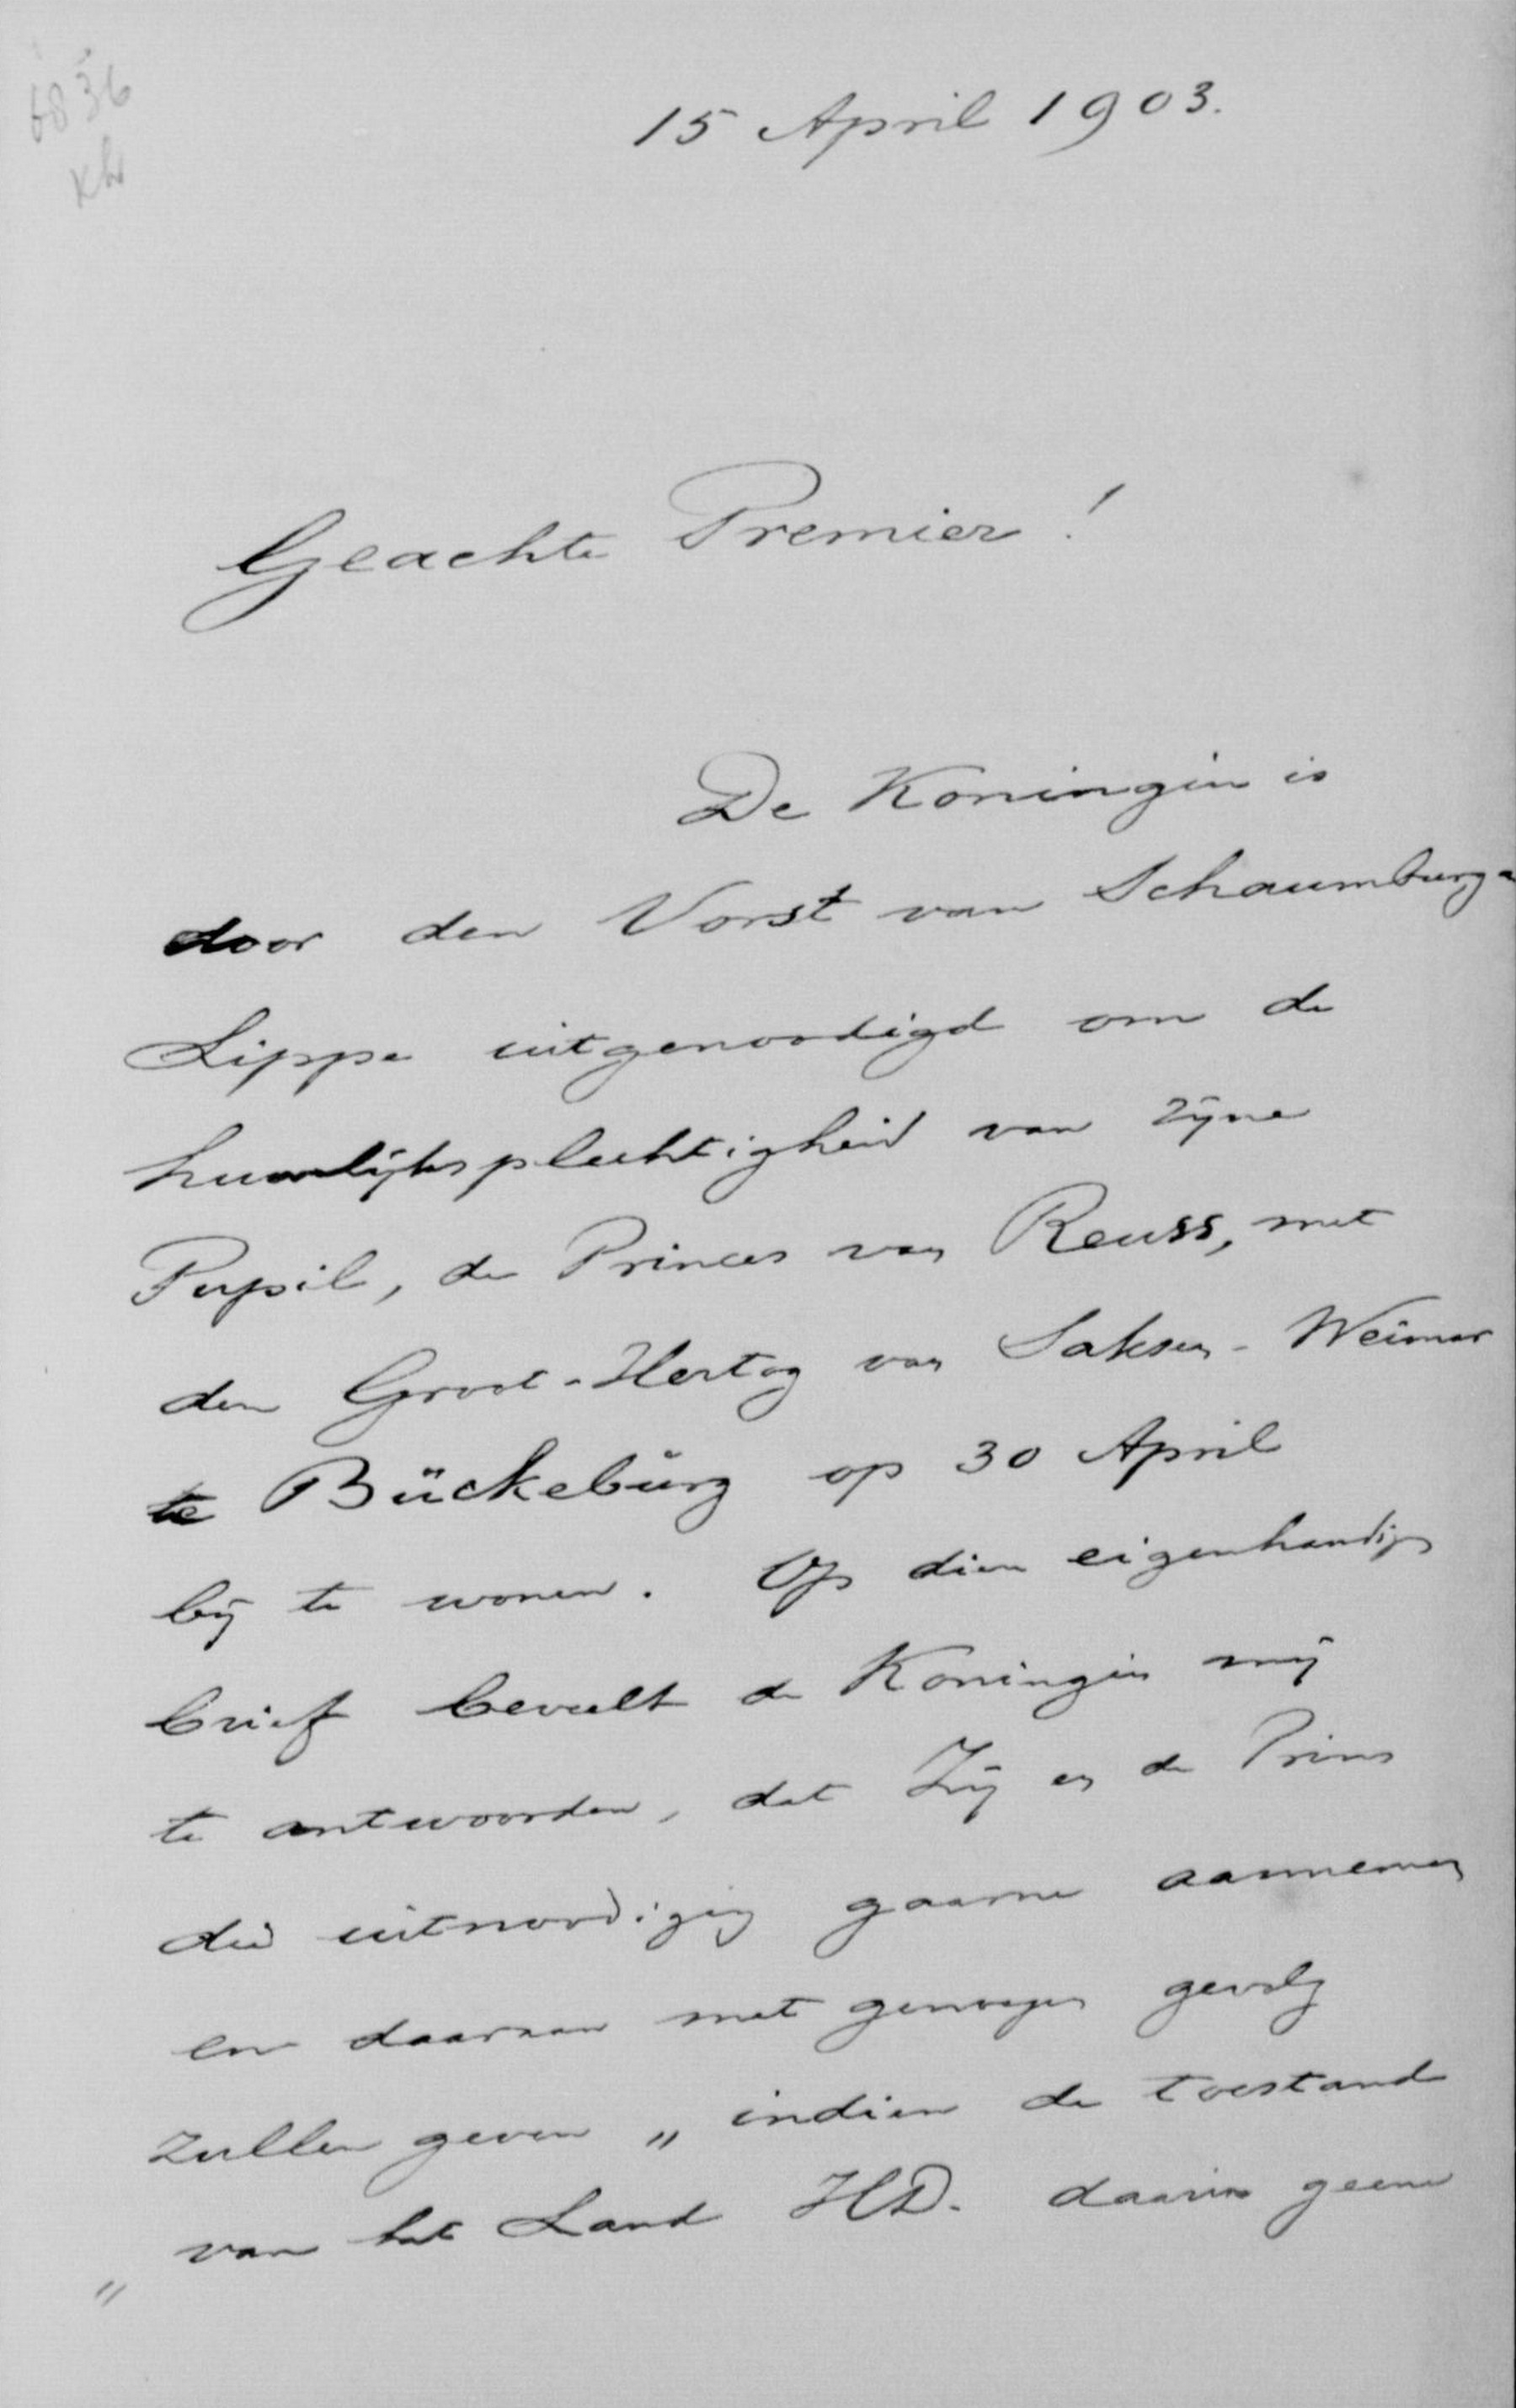 6836
Kh
15 April 1903.
Geachte Premier!
De Koningin is
door den Vorst van Schaumburg-
Lippe uitgenoodigd om de
huwlijksplechtigheid van zijne
Pupil, de Princes van Reuss, met
den Groot-Hertog van Saksen-Weimar
te Bückebürg op 30 April
bij te wonen. Op dien eigenhandige
brief beveelt de Koningin mij
te antwoorden, dat Zij en de Prins
die uitnoodiging gaarne aannemen
en daaraan met genoegen gevolg
zullen geven „ indien de toestand
„ van het Land HD. daarin geene